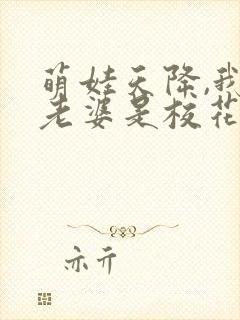 萌娃天降,我
老婆是校花
亦亓